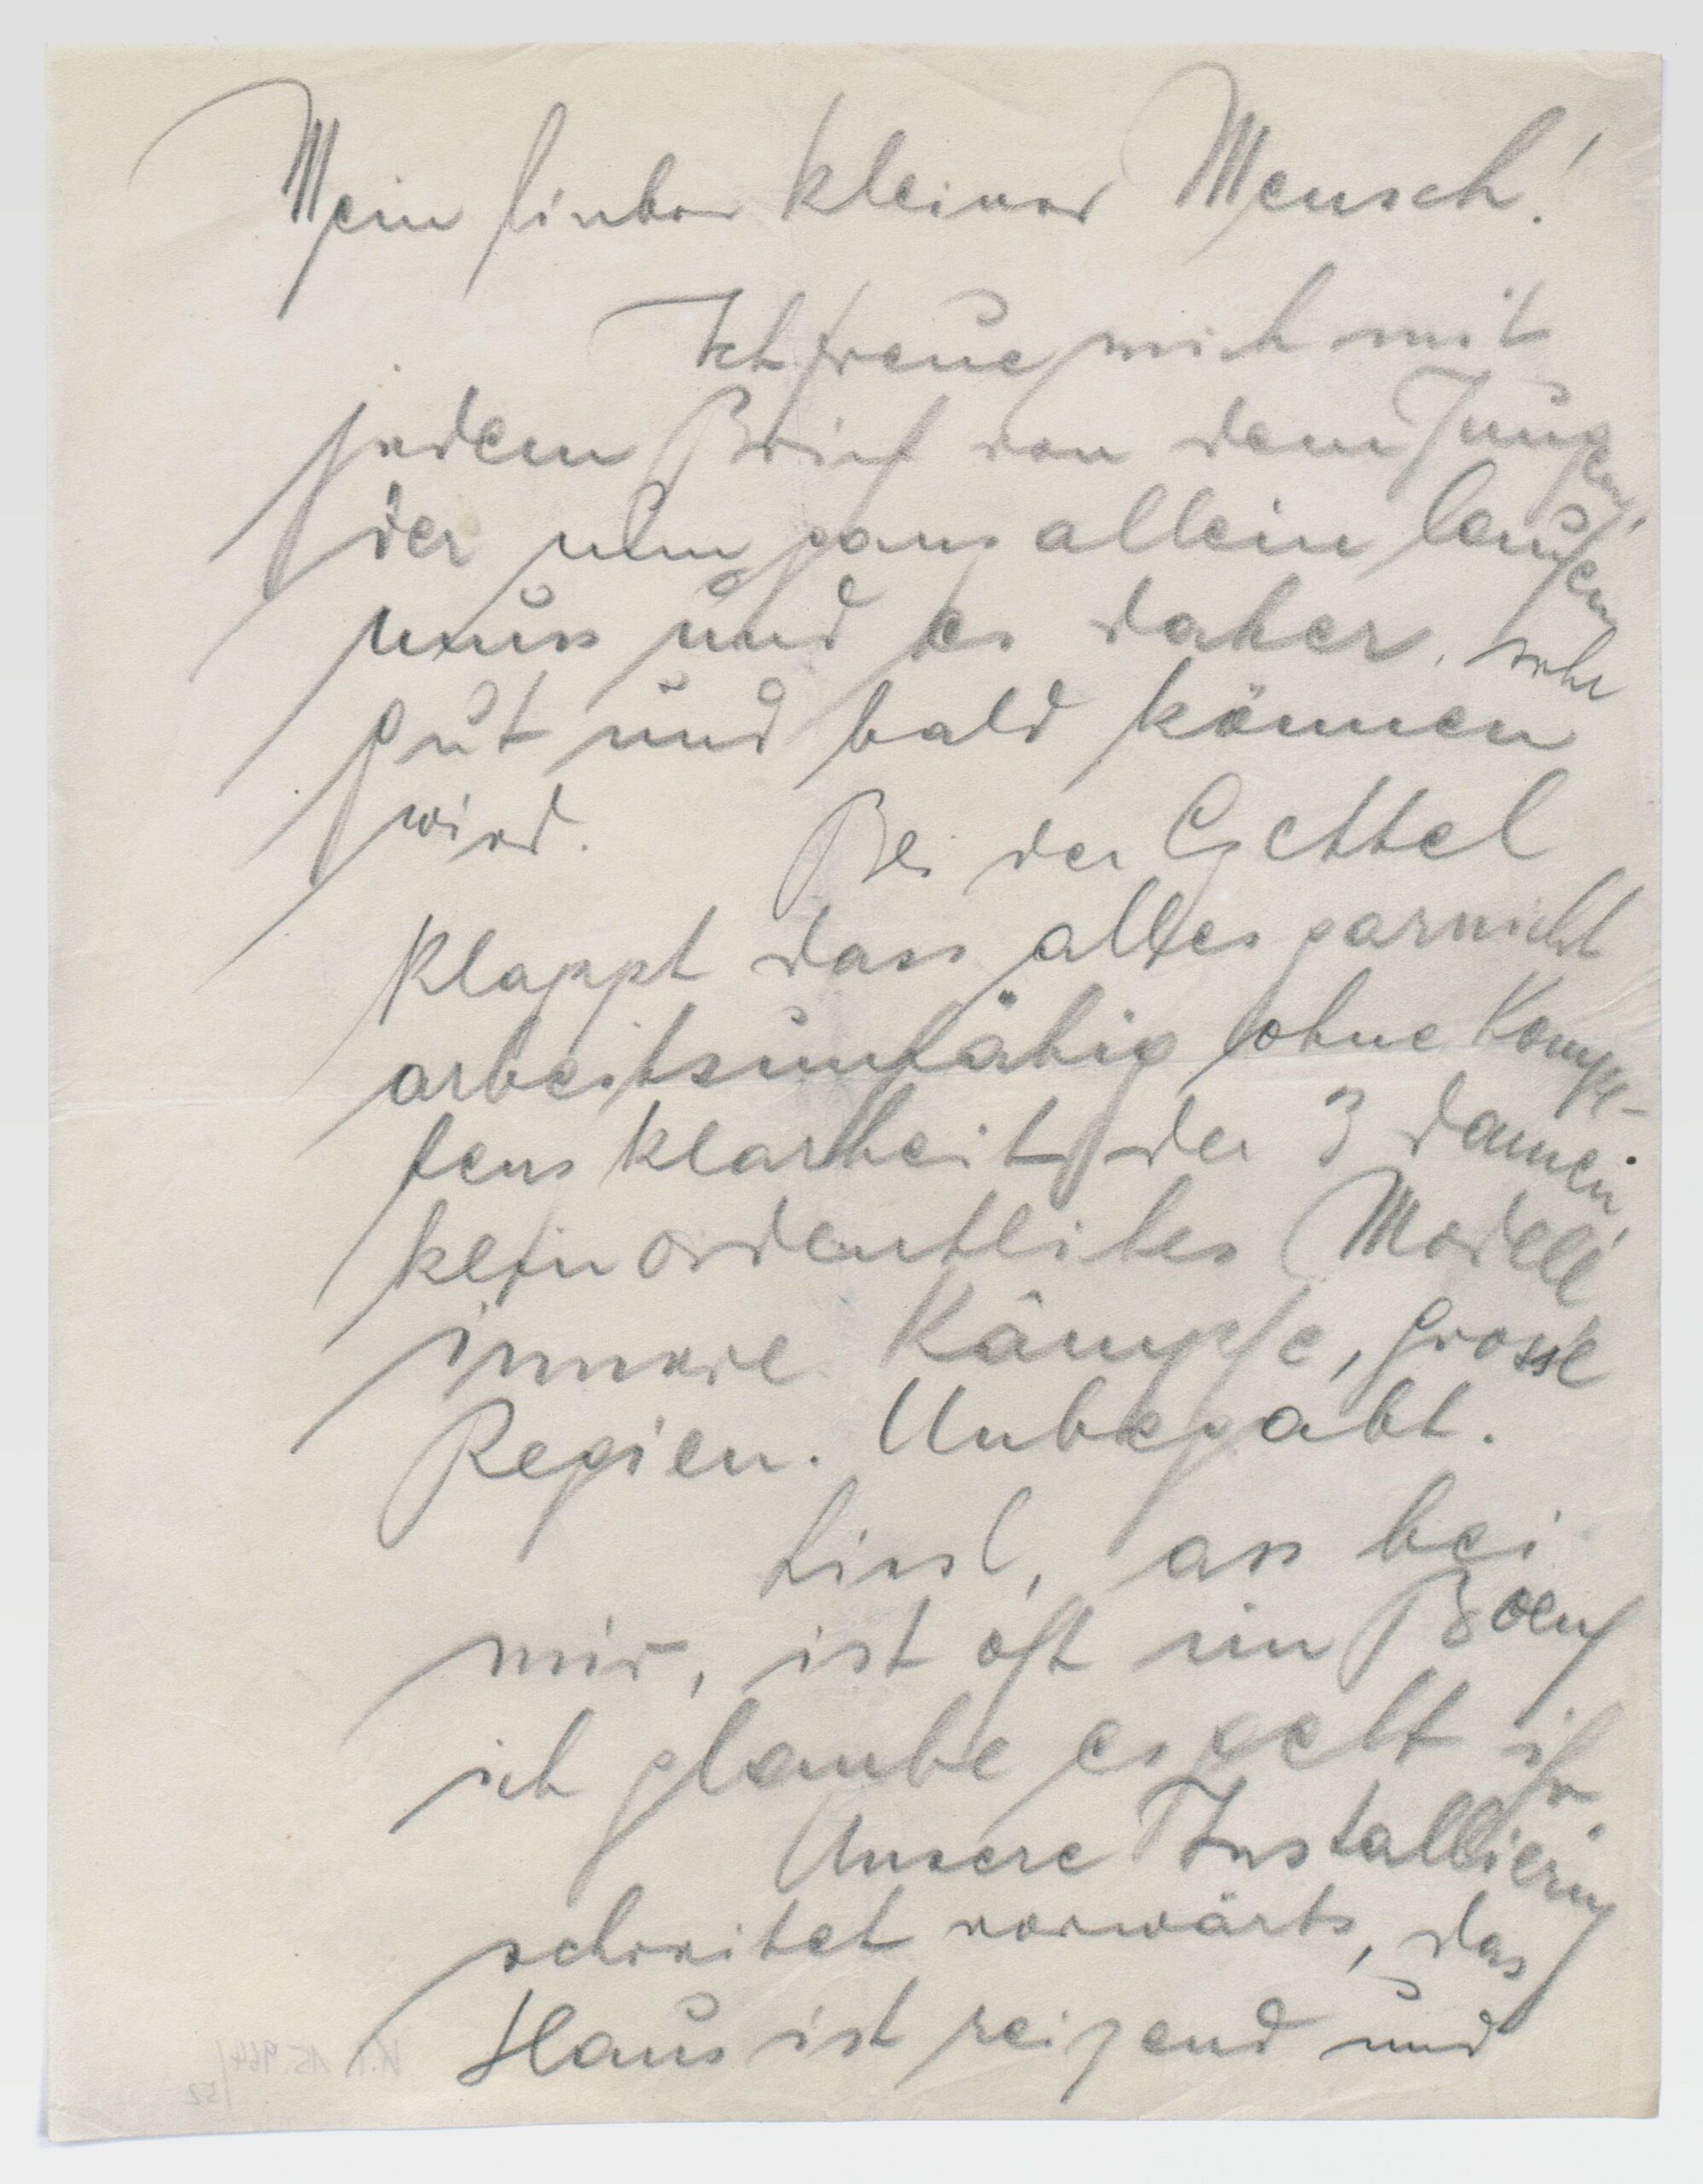 Mein lieber kleiner Mensch!
Ich freue mich mit
jedem Brief von dem Jungen,
der nun ganz allein laufen
muss und es daher sehr
gut und bald können
wird. Bei der
klappt dass alles garnicht
arbeitsunfähig ohne Kompe-
tenz klarheit der 3 Damen,
kein ordentliches Modell
innere Kämpfe, grosse
Regien. Unbegabt.
Liesl, ass bei
mir, ist oft im Boeuf
ich glaube es geht ihr.
Unsere Installierung
schreitet vorwärts, das
Haus ist reizend und